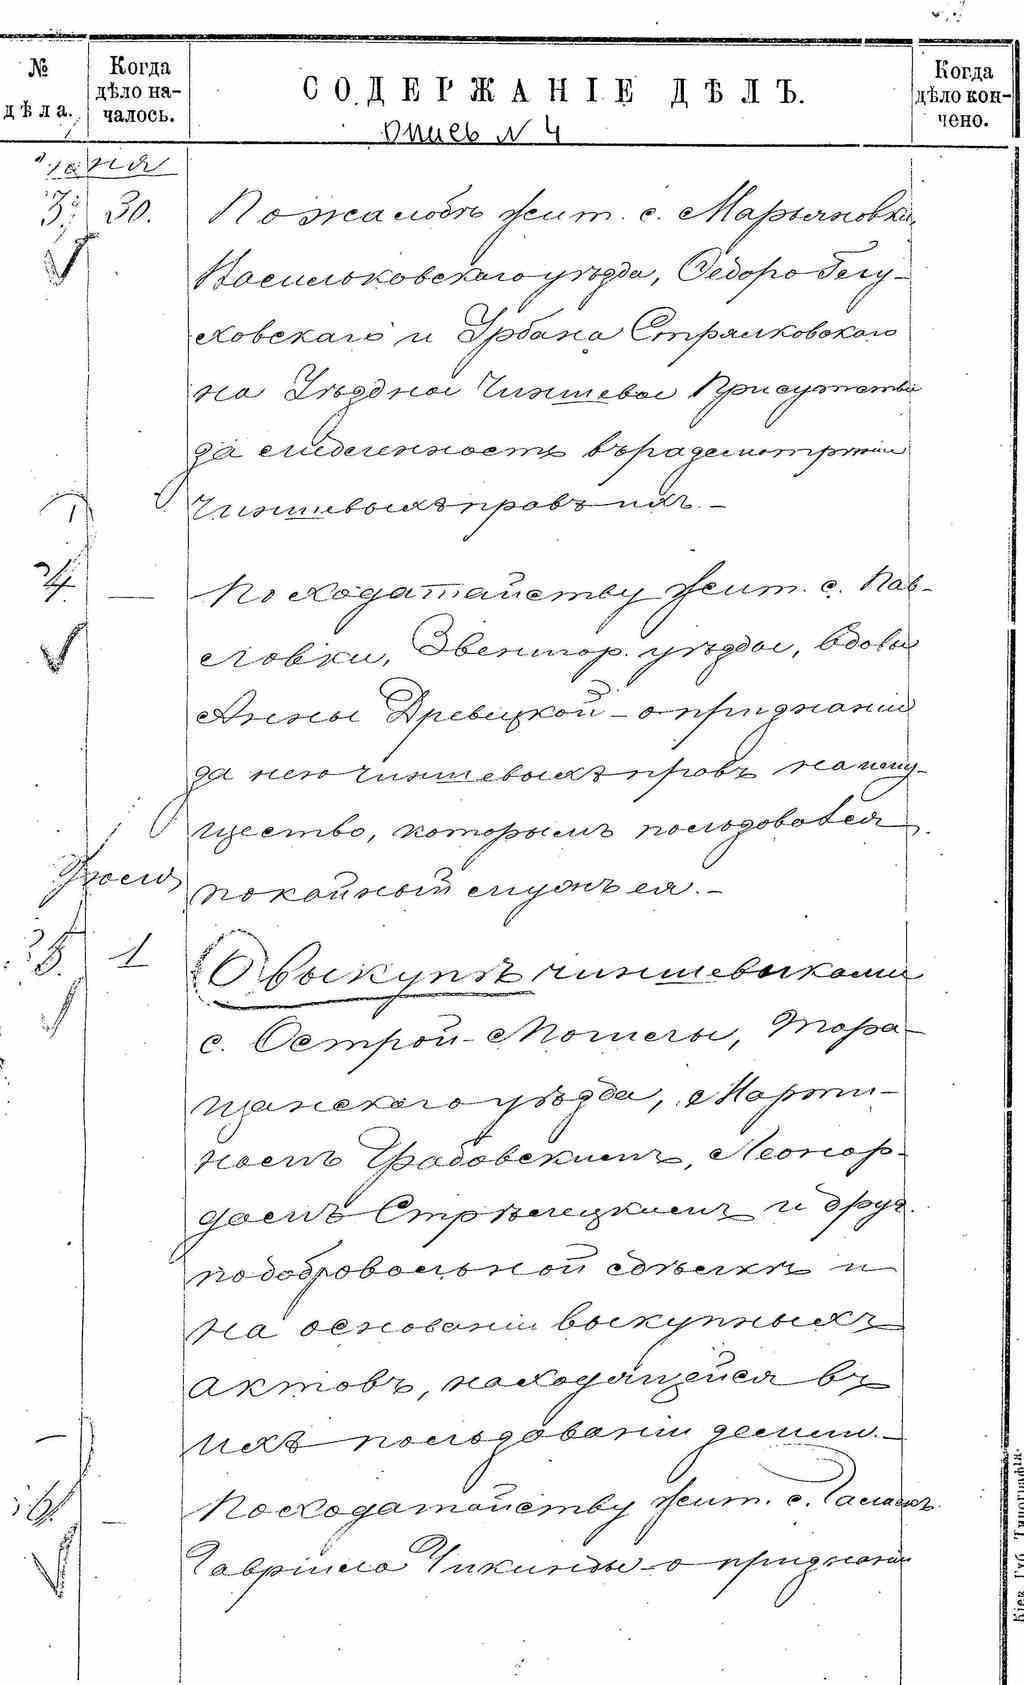 № дѣла.
Когда дѣло началось.
СОДЕРЖАНІЕ ДѢЛЪ.
Когда дѣло кончено.
Опись N 4
30. По жалобѣ жит. с. Марьяновки,
Васильковскаго уѣзда, Ѳедора
ховскаго и Урбана Стрялковскаго
на Уѣздное Чиншевое Присутствіе
за медленность въ разсмотрѣніи
чиншевыхъ правъ ихъ. –
4. — По ходатайству жит. с. Пав-
ловки, Звенигор. уѣзда, вдовы
Анны Древецкой – о признаніи
за нею чиншевыхъ правъ на иму-
щество, которымъ пользовался
покойный мужъ ея. –
5. 1 О выкупѣ чиншевиками
с. Острой-Могилы, Тара-
щанскаго уѣзда, Марти-
номъ Грабовскимъ, Леонар-
домъ Стрѣлецкимъ и друг.
по добровольной сдѣлкѣ и
на основаніи выкупныхъ
актовъ, находящейся въ
ихъ пользованіи земли. –
6. — По ходатайству жит. с.
Гавріила Чикинды – о признаніи
Кіев. Губ. Типографія.